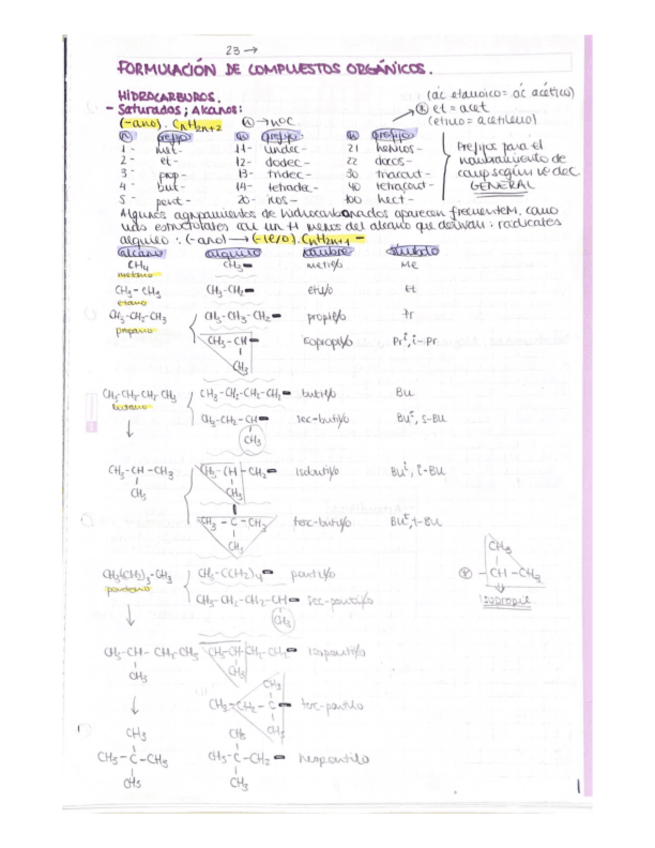 23 →
FORMULACIÓN DE COMPUESTOS ORGÁNICOS.
HIDROCARBUROS.
- Saturados; Alcanos:
(ác etanoico = ác acético)
(-ano). CnH2n+2 n → nºC.
et = acet
(etino = acetileno)
n prefijo n prefijo n prefijo
1 - met- 11- undec- 21 henicos-
2 - et- 12- dodec- 22 docos-
3 - prop- 13- tridec- 30 triacont-
4 - but- 14- tetradec- 40 tetracont-
5 - pent- 20- icos- 100 hect-
Prefijos para el
nombramiento de
comp según nº de C.
GENERAL
Algunos agrupamientos de hidrocarbonados aparecen frecuentem. como
uds estructurales con un H menos del alcano que derivan: radicales
alquilo: (-ano) → (-ilo). CnH2n+1 -
alcano alquilo nombre símbolo
CH4 CH3- metilo Me
metano
CH3-CH3 CH3-CH2- etilo Et
etano
CH3-CH2-CH3 CH3-CH3-CH2- propilo Pr
propano
CH3-CH- isopropilo Pri, i-Pr
CH3
CH3-CH2-CH2-CH3 CH3-CH2-CH2-CH2- butilo Bu
butano
CH3-CH2-CH- sec-butilo Bus, s-Bu
CH3
CH3-CH-CH3 CH3-CH-CH2- isobutilo Bui, i-Bu
CH3 CH3
CH3-C-CH3 terc-butilo But, t-Bu
CH3
CH3
CH3(CH2)3-CH3 CH3-C(CH2)4- pentilo
-CH-CH3
pentano
CH3-CH2-CH2-CH- sec-pentilo
Isopropil
CH3
CH3-CH-CH2-CH3 CH3-CH-CH2-CH2- isopentilo
CH3 CH3
CH3
CH3-CH2-C- terc-pentilo
CH3
CH3 CH3
CH3-C-CH3 CH3-C-CH2- neopentilo
CH3 CH3
1